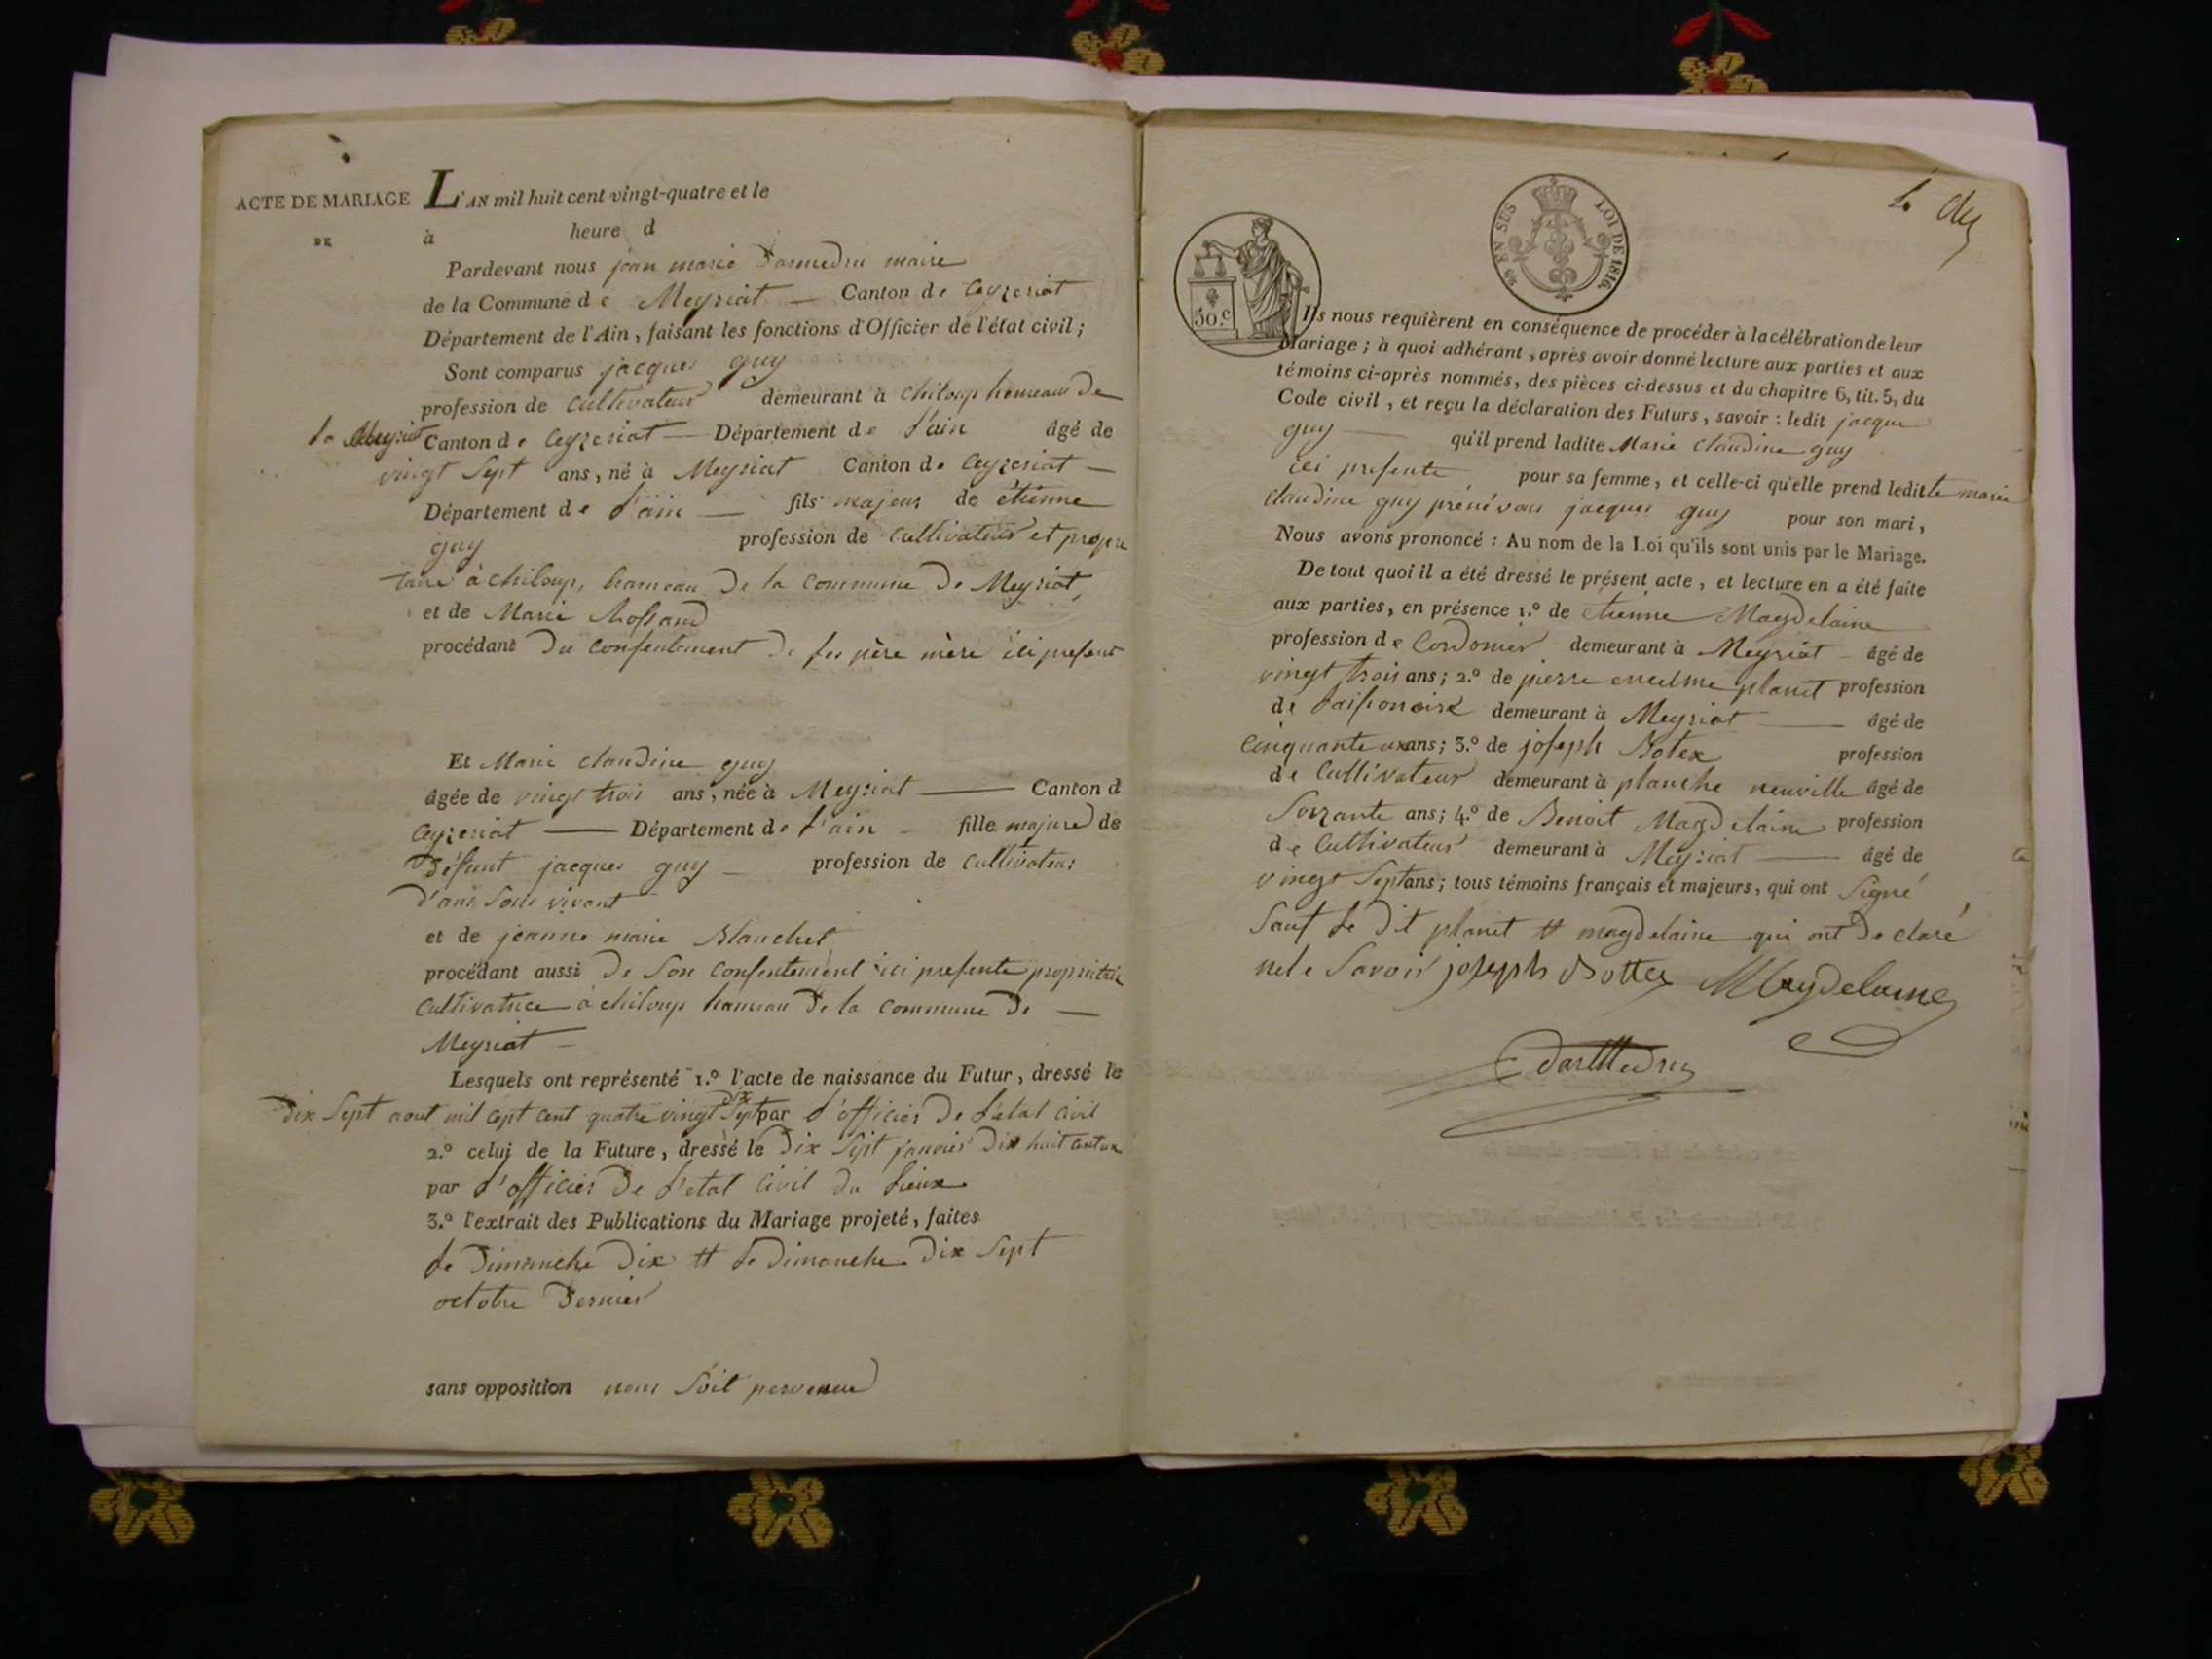 ACTE DE MARIAGE
DE
L'AN mil huit cent vingt-quatre et le
à heure d
Pardevant nous jean marie Darmedru maire
de la Commune de Meyriat — Canton de Ceyzeriat
Département de l'Ain, faisant les fonctions d'Officier de l'état civil;
Sont comparus jacques guy
profession de cultivateur demeurant à chiloup hameau de
Meyriat Canton de Ceyzeriat — Département de l'ain âgé de
vingt sept ans, né à Meyriat Canton de Ceyzeriat —
Département de l'ain — fils majeur de étienne
guy profession de cultivateur et proprie
taire à chiloup, hameau de la commune de Meyriat,
et de Marie
procédant du consentement de ses père mère ici present
Et Marie claudine guy
âgée de vingt trois ans, née à Meyriat — Canton d
Ceyzeriat — Département de l'ain — fille majure de
défunt jacques guy — profession de cultivateur
d'ans son vivant
et de jeanne marie Blanchet
procédant aussi de son consentement ici presente propriétaire
cultivatrice à chiloup hameau de la commune de —
Meyriat —
Lesquels ont représenté 1.º l'acte de naissance du Futur, dressé le
dix sept aout mil sept cent quatre vingt dix sept par l'officier de l'état civil
2.º celui de la Future, dressé le dix sept janvier dix huit cent un
par l'officier de l'etat civil du lieux
3.º l'extrait des Publications du Mariage projeté, faites
le dimanche dix et le dimanche dix sept
octobre dernier
sans opposition nous soit parvenue
EN SUS LOI DE 1816.
50.c
Ils nous requièrent en conséquence de procéder à la célébration de leur
Mariage; à quoi adhérant, après avoir donné lecture aux parties et aux
témoins ci-après nommés, des pièces ci-dessus et du chapitre 6, tit. 5, du
Code civil, et reçu la déclaration des Futurs, savoir: ledit jacque
guy — qu'il prend ladite Marie claudine guy
ici presente pour sa femme, et celle-ci qu'elle prend ledit marie
claudine guy jacques guy pour son mari,
Nous avons prononcé: Au nom de la Loi qu'ils sont unis par le Mariage.
De tout quoi il a été dressé le présent acte, et lecture en a été faite
aux parties, en présence 1.º de étienne Magdelaine
profession de Cordonier demeurant à Meyriat — âgé de
vingt trois ans; 2.º de pierre planet profession
de demeurant à Meyriat — âgé de
Cinquante ans; 3.º de joseph Botex profession
de Cultivateur demeurant à planche neuville âgé de
Soixante ans; 4.º de Benoit Magdelaine profession
de Cultivateur demeurant à Meyriat — âgé de
vingt Sept ans; tous témoins français et majeurs, qui ont Signé
Sauf le dit planet et magdelaine qui ont declaré
ne le Savoir joseph Bottex Magdelaine
Darmedru